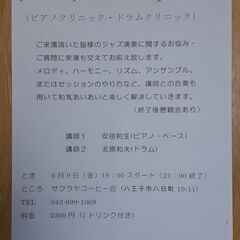 (ピアノクリニック・ドラムクリニック)
ご来場頂いた皆様のジャズ演奏に関するお悩み・
ご質問に実演も交えてお応え致します。
メロディ、ハーモニー、リズム、アンサンブル、
またはセッションのやり方など、講師との合奏も
用いて和気あいあいと楽しく解決していきます。
(終了後懇親会あり)
講師1 安田和生(ピアノ・ベース)
講師2 北原和夫(ドラム)
とき 6月9日(金)19:00スタート(21:00終了)
ところ サクラヤコーヒー店(八王子市八日町10-11)
TEL 042-699-1069
料金 2300円(1ドリンク付き)